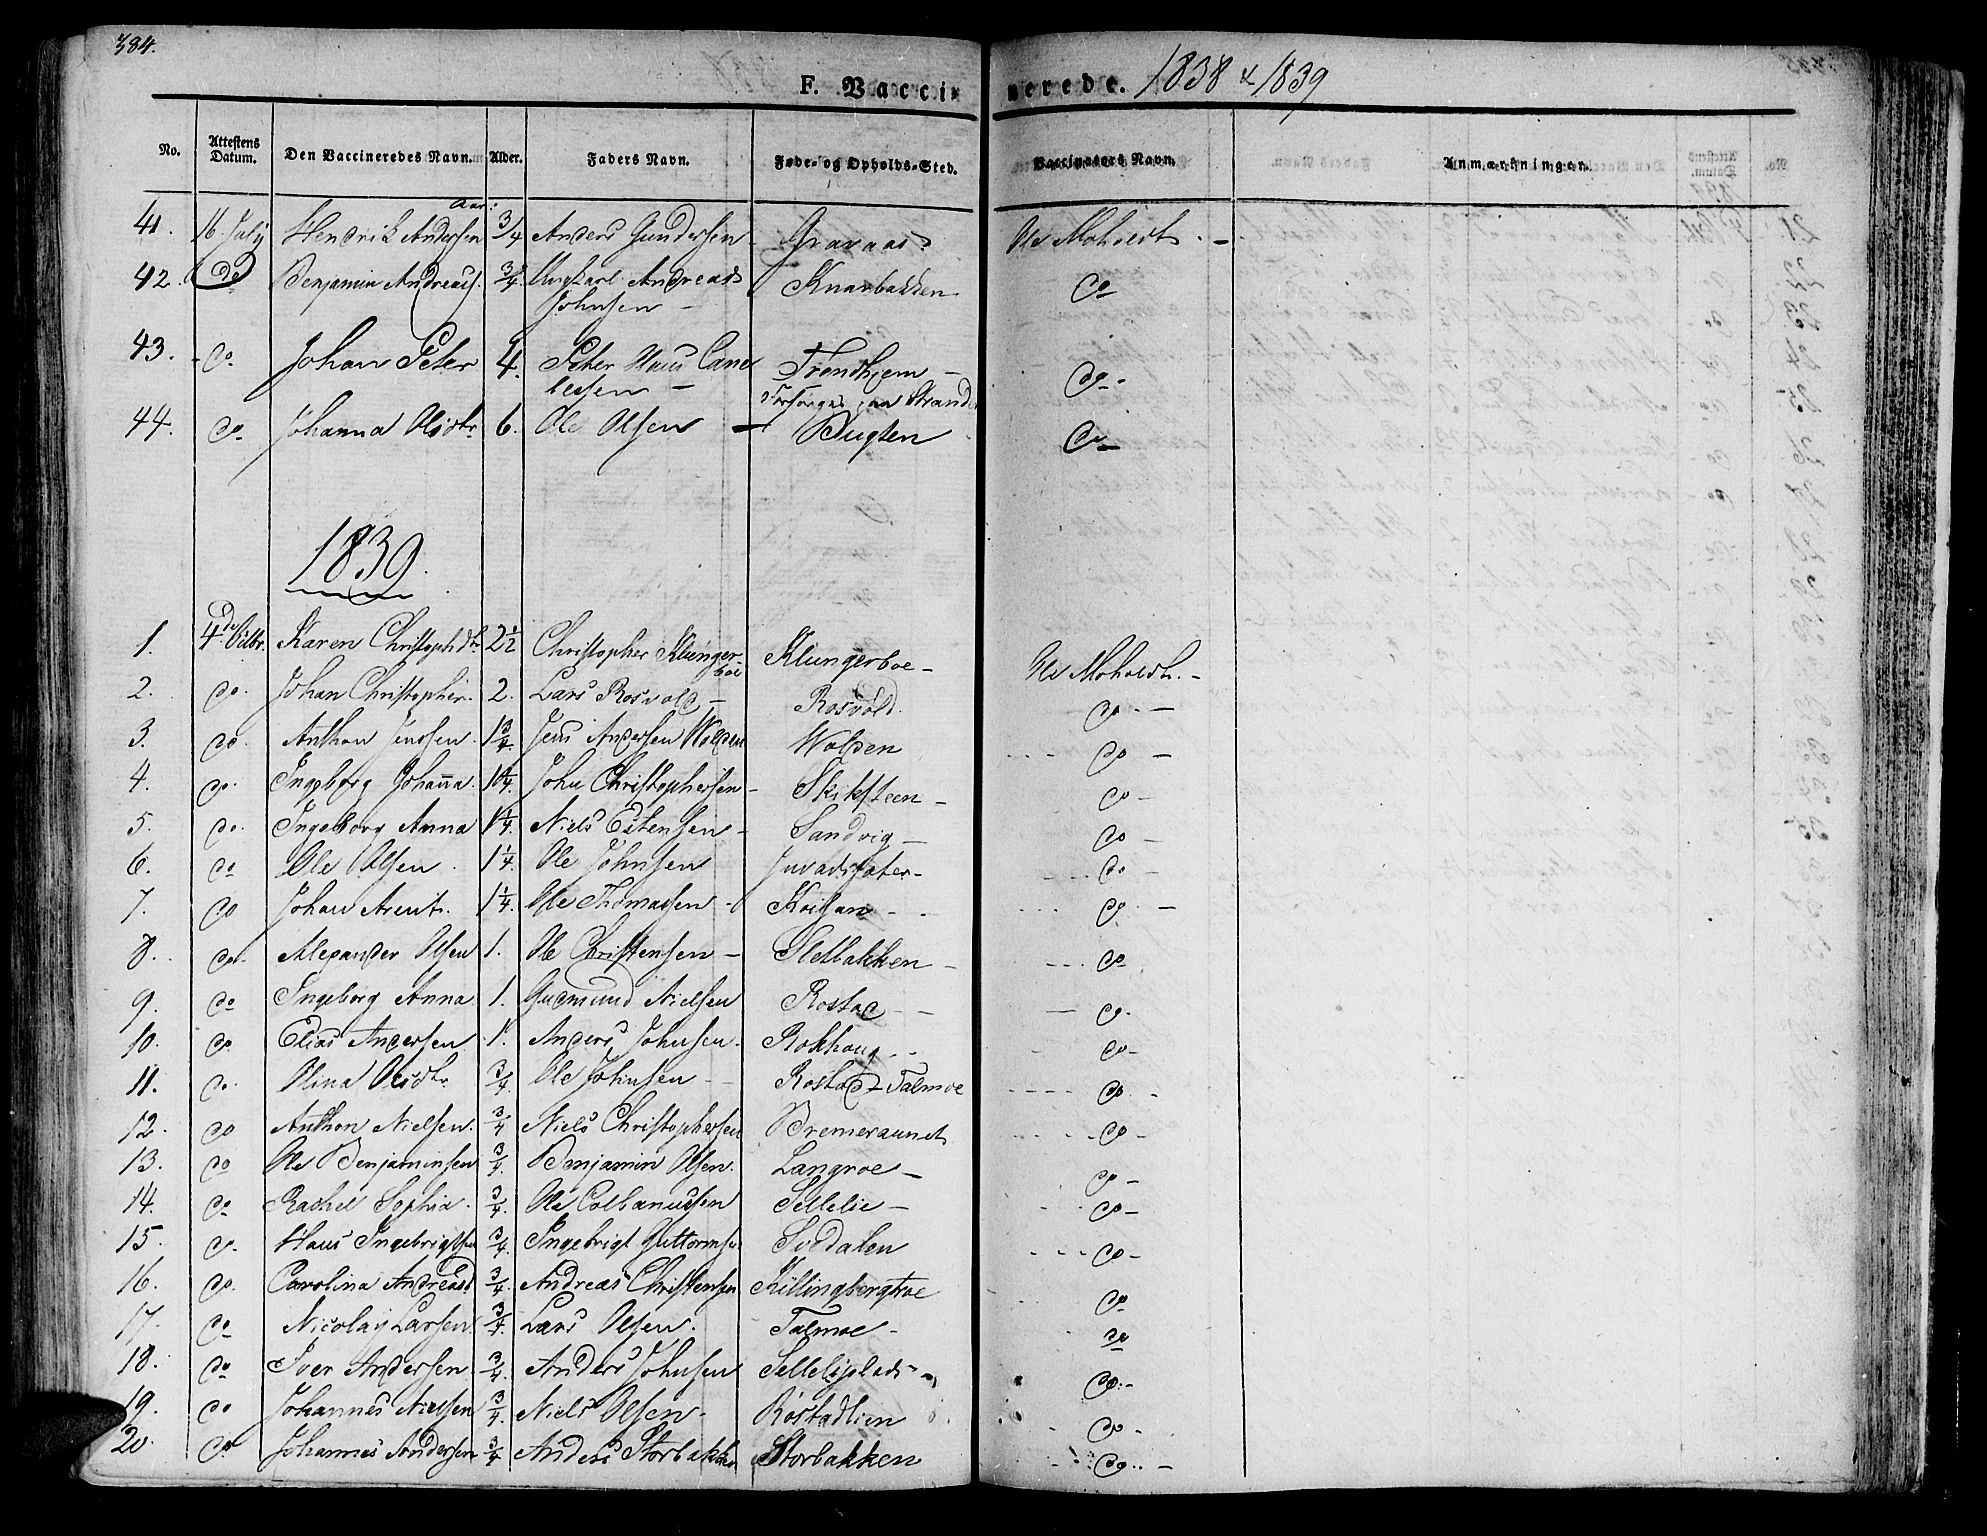 384.
F. Vaccinerede. 1838 & 1839
No. Attestens Datum. Den Vaccineredes Navn. Alder. Faders Navn. Føde- og Opholds-Sted. Vaccinators Navn. Anmærkninger.
Aar:
41. 16 July Hendrik Andersen 3/4 Anders Gundersen Gravaas Ole Moholdt
42. do Benjamin Andreas. 3/4 Ungkarl Andreas Knarbakken do
Johnsen
43. do Johan Peter 4. Peter Trondhjem do
Forsørges paa Strand
44. do Johanna Olsdtr 6. Ole Olsen Bugten do
1839.
1. 4de Karen Christophdtr 2 1/2 Christopher Klunger- Klungerboe Ole Moholdt
boe
2. do. Johan Christopher. 2. Lars Rosvold Rosvold do
3. do. Anthon Jenssen. 1 3/4 Jens Andersen Wolden Wolden do
4. do. Ingeborg Johanna. 1 1/4 John Christophersen Skiksteen do
5. do. Ingeborg Anna 1 1/4 Niels Estensen Sandvig do
6. do Ole Olsen 1 1/4 Ole Johnsen do
7. do Johan Arent. 1 1/4 Ole Thomassen do
8. do. Alexander Olsen 1. Ole Christensen Sletbakken do
9. do Ingeborg Anna 1. Gudmund Nielsen Rostad do.
10. do. Elias Andersen 1. Anders Johnsen. Rokhoug do
11. do. Olina Olsdtr 3/4 Ole Johnsen Rostad Talmoe do
12. do Anthon Nielsen. 3/4 Niels Christophersen Bremeraunet do
13. do Ole Benjaminsen 3/4 Benjamin Olsen. Langroe do
14. do Rachel Sophia. 3/4 Ole Colbanussen Sellelie do
15. do. Hans Ingebrigtsen 3/4 Ingebrigt Guttormsen do
16. do. Carolina Andreasd 3/4 Andreas Christensen Killingbergtroe do
17. do Nicolay Larsen 3/4 Lars Olsen. Talmoe do
18. do Iver Andersen. 3/4 Anders Johnsen Sellelieplads do
19. do Johannes Nielsen 3/4 Niels Olsen Rostadlien do
20. do Johannes Andersen 3/4 Anders Storbakken Storbakken do